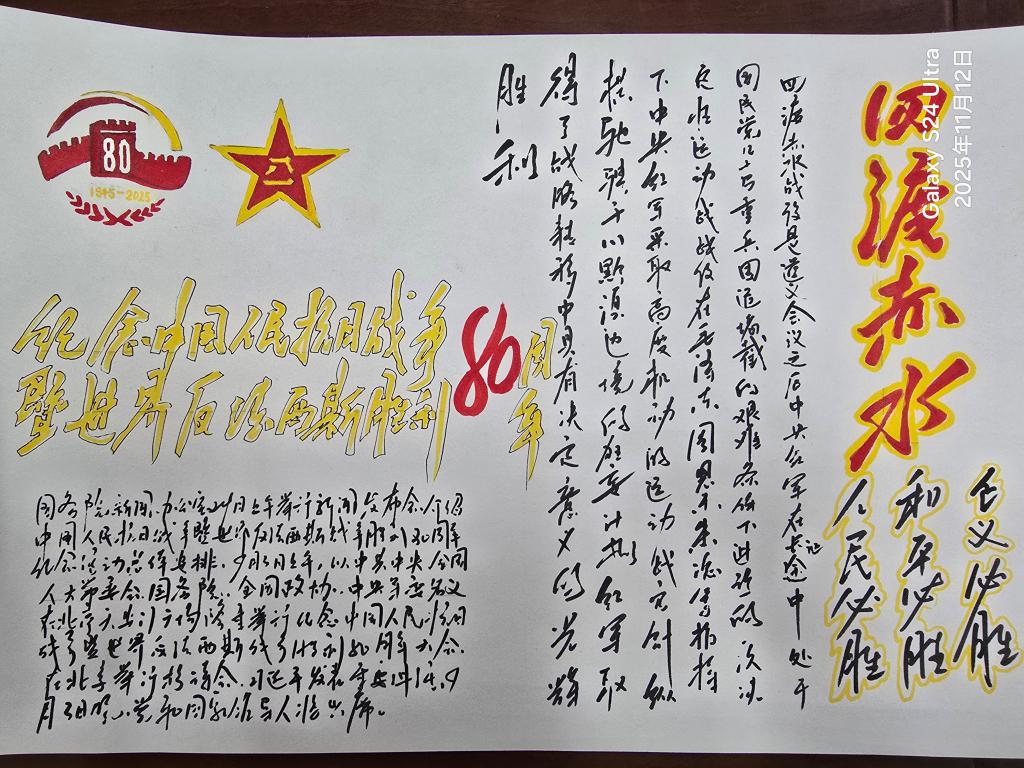 80
1945-2025
八一
纪念中国人民抗日战争
暨世界反法西斯胜利
80周年
国务院新闻办公室24日上午举行新闻发布会介绍
中国人民抗日战争暨世界反法西斯战争胜利80周年
纪念活动总体安排。9月3日上午，以中共中央 全国
人大常委会 国务院 全国政协 中央军委名义
在北京天安门广场隆重举行纪念中国人民抗日
战争暨世界反法西斯战争胜利80周年大会，
在北京举行招待会，习近平发表重要讲话，9
月3日晚，党和国家领导人将出席。
四渡赤水
正义必胜
和平必胜
人民必胜
四渡赤水战役是遵义会议之后中央红军在长征途中处于
国民党几十万重兵围追堵截的艰难条件下进行的一次决
定性运动战战役在毛泽东周恩来朱德等指挥
下中央红军采取高度机动的运动战方针纵
横驰骋于川黔滇边境的 红军取
得了战略转移中具有决定意义的光辉
胜利
Galaxy S24 Ultra
2025年11月12日